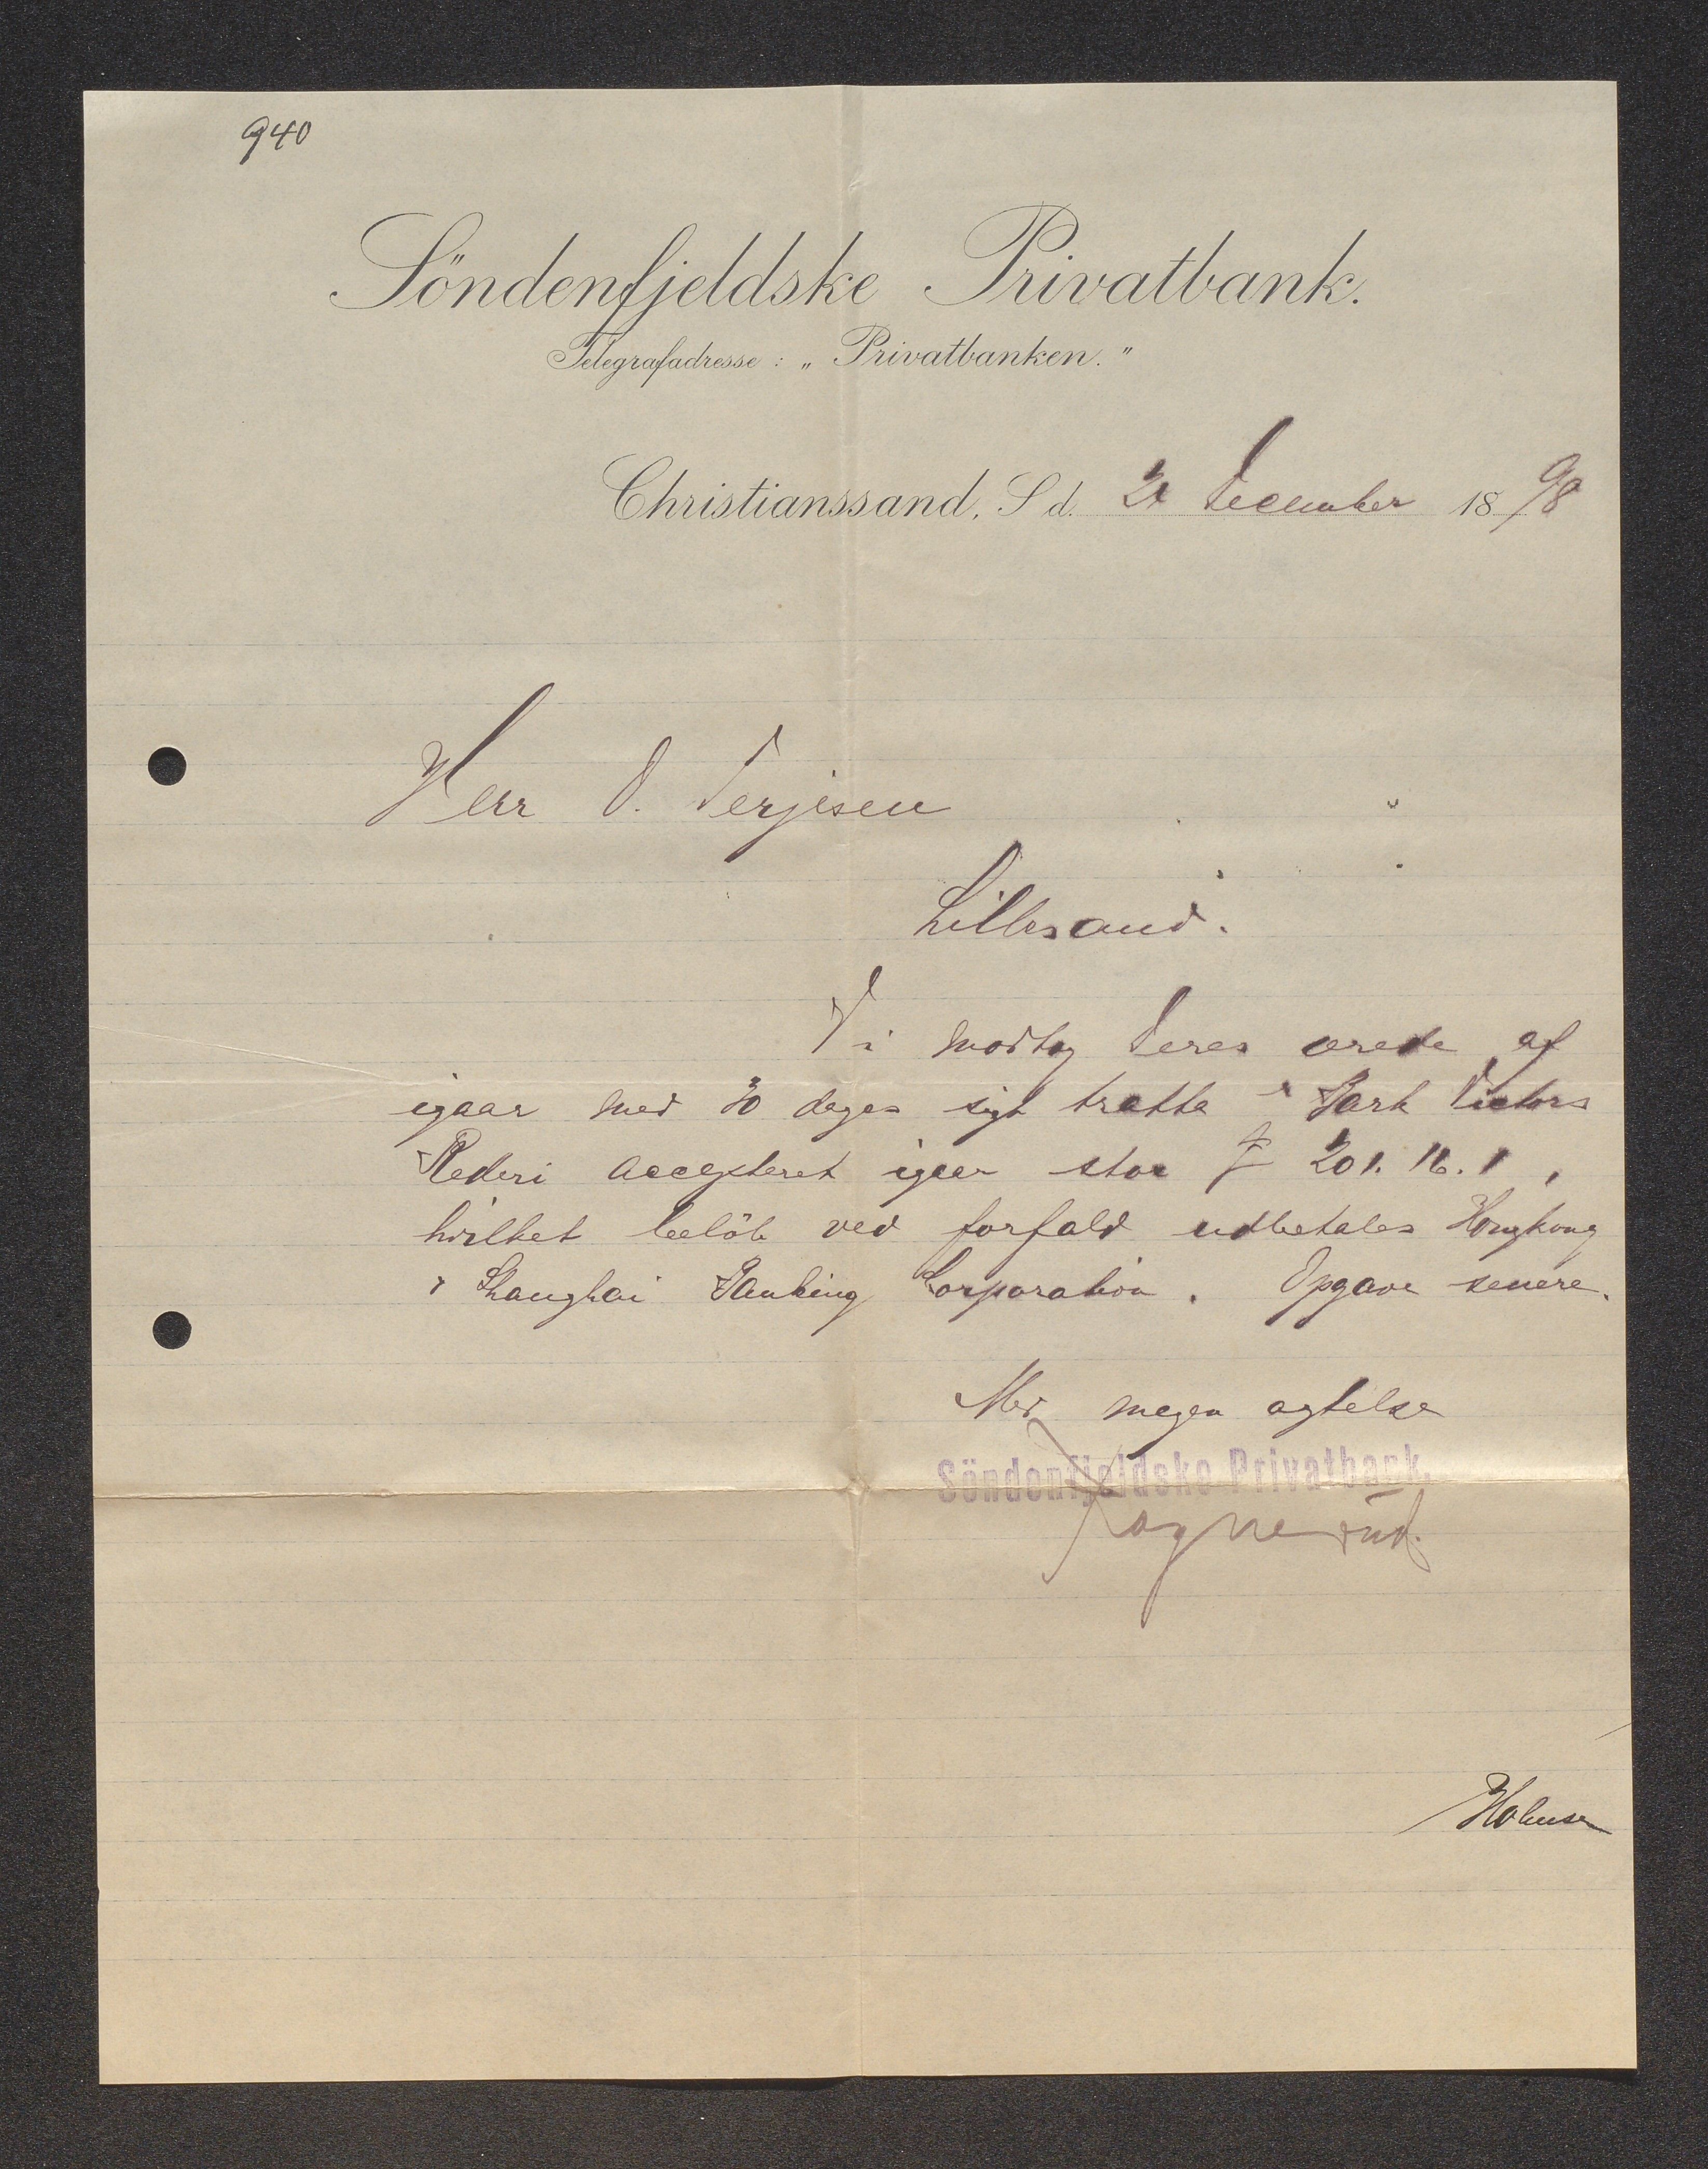 940
Söndenfjeldske Privatbank.
Telegrafadresse: „Privatbanken."
Christianssand, S d. 21 December 1898
Herr O. Terjesen
Lillesand.
Vi modtog Deres ærede af
igaar med 30 dages sigt tratte Bark Victors
Rederi accepteret igaar stor £ 201. 16. 1,
hvilket beløb ved forfald udbetales Hongkong
& Shanghai Banking Corporation. Opgave senere.
Med megen agtelse
Söndenfjeldske Privatbank.